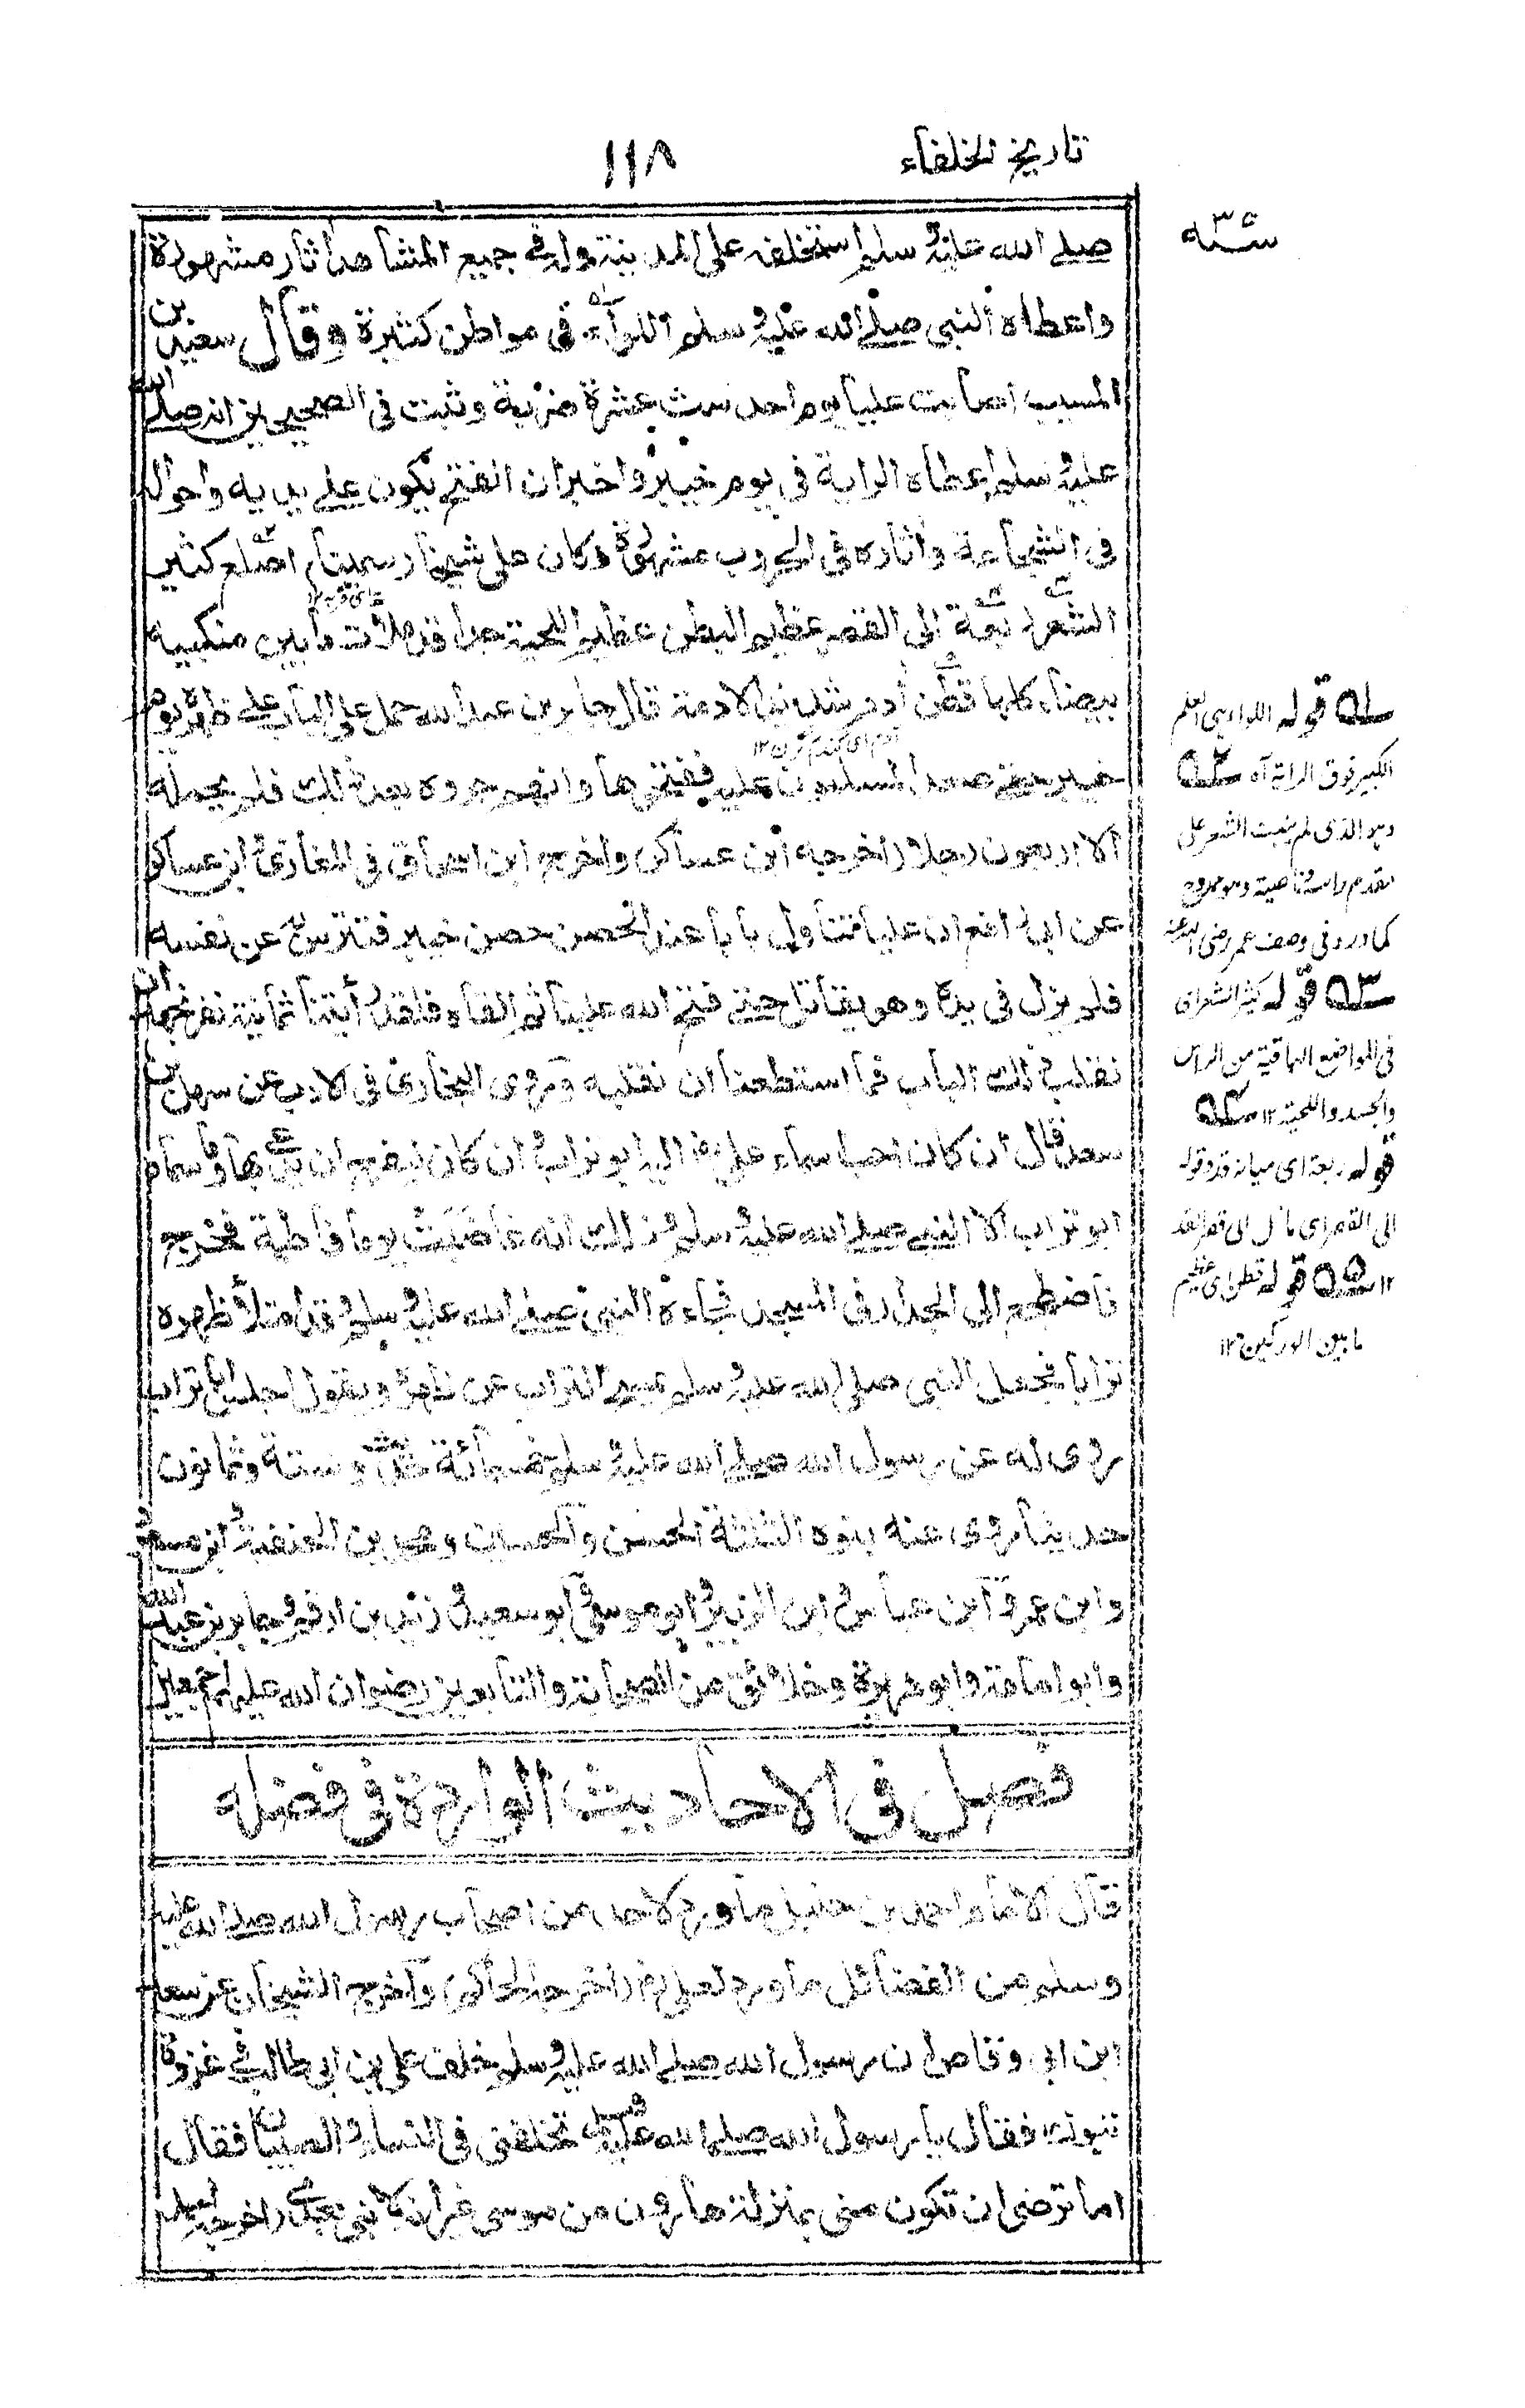 تاريخ الخلفاء
١١٨
صلے الله عليه وسلم استخلفه على المدينة وله فى جميع المشاهد اثار مشهورة
واعطاه النبى صلے الله عليه وسلم اللواء فى مواطن كثيرة وقال سعيد بن
المسيب اصابت عليا يوم احد ست عشرة ضربة وثبت فى الصحيحين انه صلے الله
عليه وسلم اعطاه الراية فى يوم خيبر واخبر ان الفتح يكون علے يديه واحواله
فى الشجاعة وآثاره فى الحروب مشهورة وكان على شيخا سمينا اصلع كثير
الشعر ربعة الى القصر عظيم البطن عظيم اللحية جدا قد ملأت ما بين منكبيه
بيضاء كلها قطن آدم شديد الادمة قال جابر بن عبد الله حمل على الباب علے ظهره يوم
خيبر حتے صعد المسلمون عليه ففتحوها وانهم جروه بعد ذلك فلم يحمله
الا اربعون رجلا اخرجه ابن عساكر واخرج ابن اسحاق فى المغازى وابن عساكر
عن ابى رافع ان عليا تناول بابا عند الحصن حصن خيبر فتترس به عن نفسه
فلم يزل فى يده وهو يقاتل حتے فتح الله علينا ثم القاه فلقد رأيتنا ثمانية نفر نجهد ان
نقلب ذلك الباب فما استطعنا ان نقلبه وروى البخارى فى الادب عن سهل بن
سعد قال ان كان احب اسماء على رض اليه ابو تراب وان كان ليفرح ان يدعى بها وما سماه
ابو تراب الا النبى صلے الله عليه وسلم وذلك انه غاضبت يوما فاطمة فخرج
فاضطجع الى الجدار فى المسجد فجاءه النبى صلے الله عليه وسلم وقد امتلأ ظهره
ترابا فجعل النبى صلى الله عليه وسلم يمسح التراب عن ظهره ويقول اجلس ابا تراب
روى له عن رسول الله صلے الله عليه وسلم خمسمائة حديث وستة وثمانون
حديثا روى عنه بنوه الثلثة الحسن والحسين ومحمد بن الحنفية وابن مسعود
وابن عمر وابن عباس وابن الزبير وابو موسى وابو سعيد وزيد بن ارقم وجابر بن عبد الله
وابو امامة وابو هريرة وخلائق من الصحابة والتابعين رضوان الله عليهم اجمعين
فصل فى الاحاديث الواردة فى فضله
قال الامام احمد بن حنبل ما ورد لاحد من اصحاب رسول الله صلے الله عليه
وسلم من الفضائل ما ورد لعلى رض اخرجه الحاكم واخرج الشيخان عن سعد
ابن ابى وقاص ان رسول الله صلے الله عليه وسلم خلف على بن ابى طالب فى غزوة
تبوك فقال يا رسول الله صلے الله عليه وسلم تخلفنى فى النساء والصبيان فقال
اما ترضى ان تكون منى بمنزلة هارون من موسى غير انه لا نبى بعدى اخرجه
سنه
١ قوله اللواء هى العلم
الكبير فوق الراية ٢
وهو الذى لم ينبت الشعر على
مقدم راسه وناصيته وهو ممدوح
كما ورد فى وصف عمر رضى الله عنه
٣ قوله كثير الشعر اى
فى المواضع الباقية من الراس
والجسد واللحية ١٢ ٤
قوله ربعة اى ميانه قد وقوله
الى القصر اى مائل الى قصر القد
١٢ ٥ قوله قطن اى عظيم
ما بين الوركين ١٢